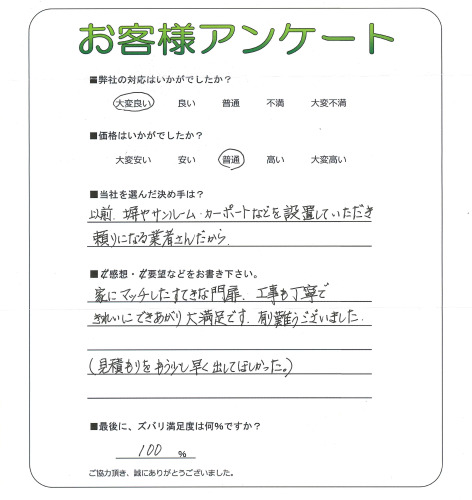 お客様アンケート
■弊社の対応はいかがでしたか?
大変良い 良い 普通 不満 大変不満
■価格はいかがでしたか?
大変安い 安い 普通 高い 大変高い
■当社を選んだ決め手は?
以前、塀やサンルーム・カーポートなどを設置していただき
頼りになる業者さんだから。
■ご感想・ご要望などをお書き下さい。
家にマッチしたすてきな門扉、工事も丁寧で
きれいにできあがり大満足です。有難うございました。
(見積もりをもう少し早く出してほしかった。)
■最後に、ズバリ満足度は何%ですか?
100 %
ご協力頂き、誠にありがとうございました。